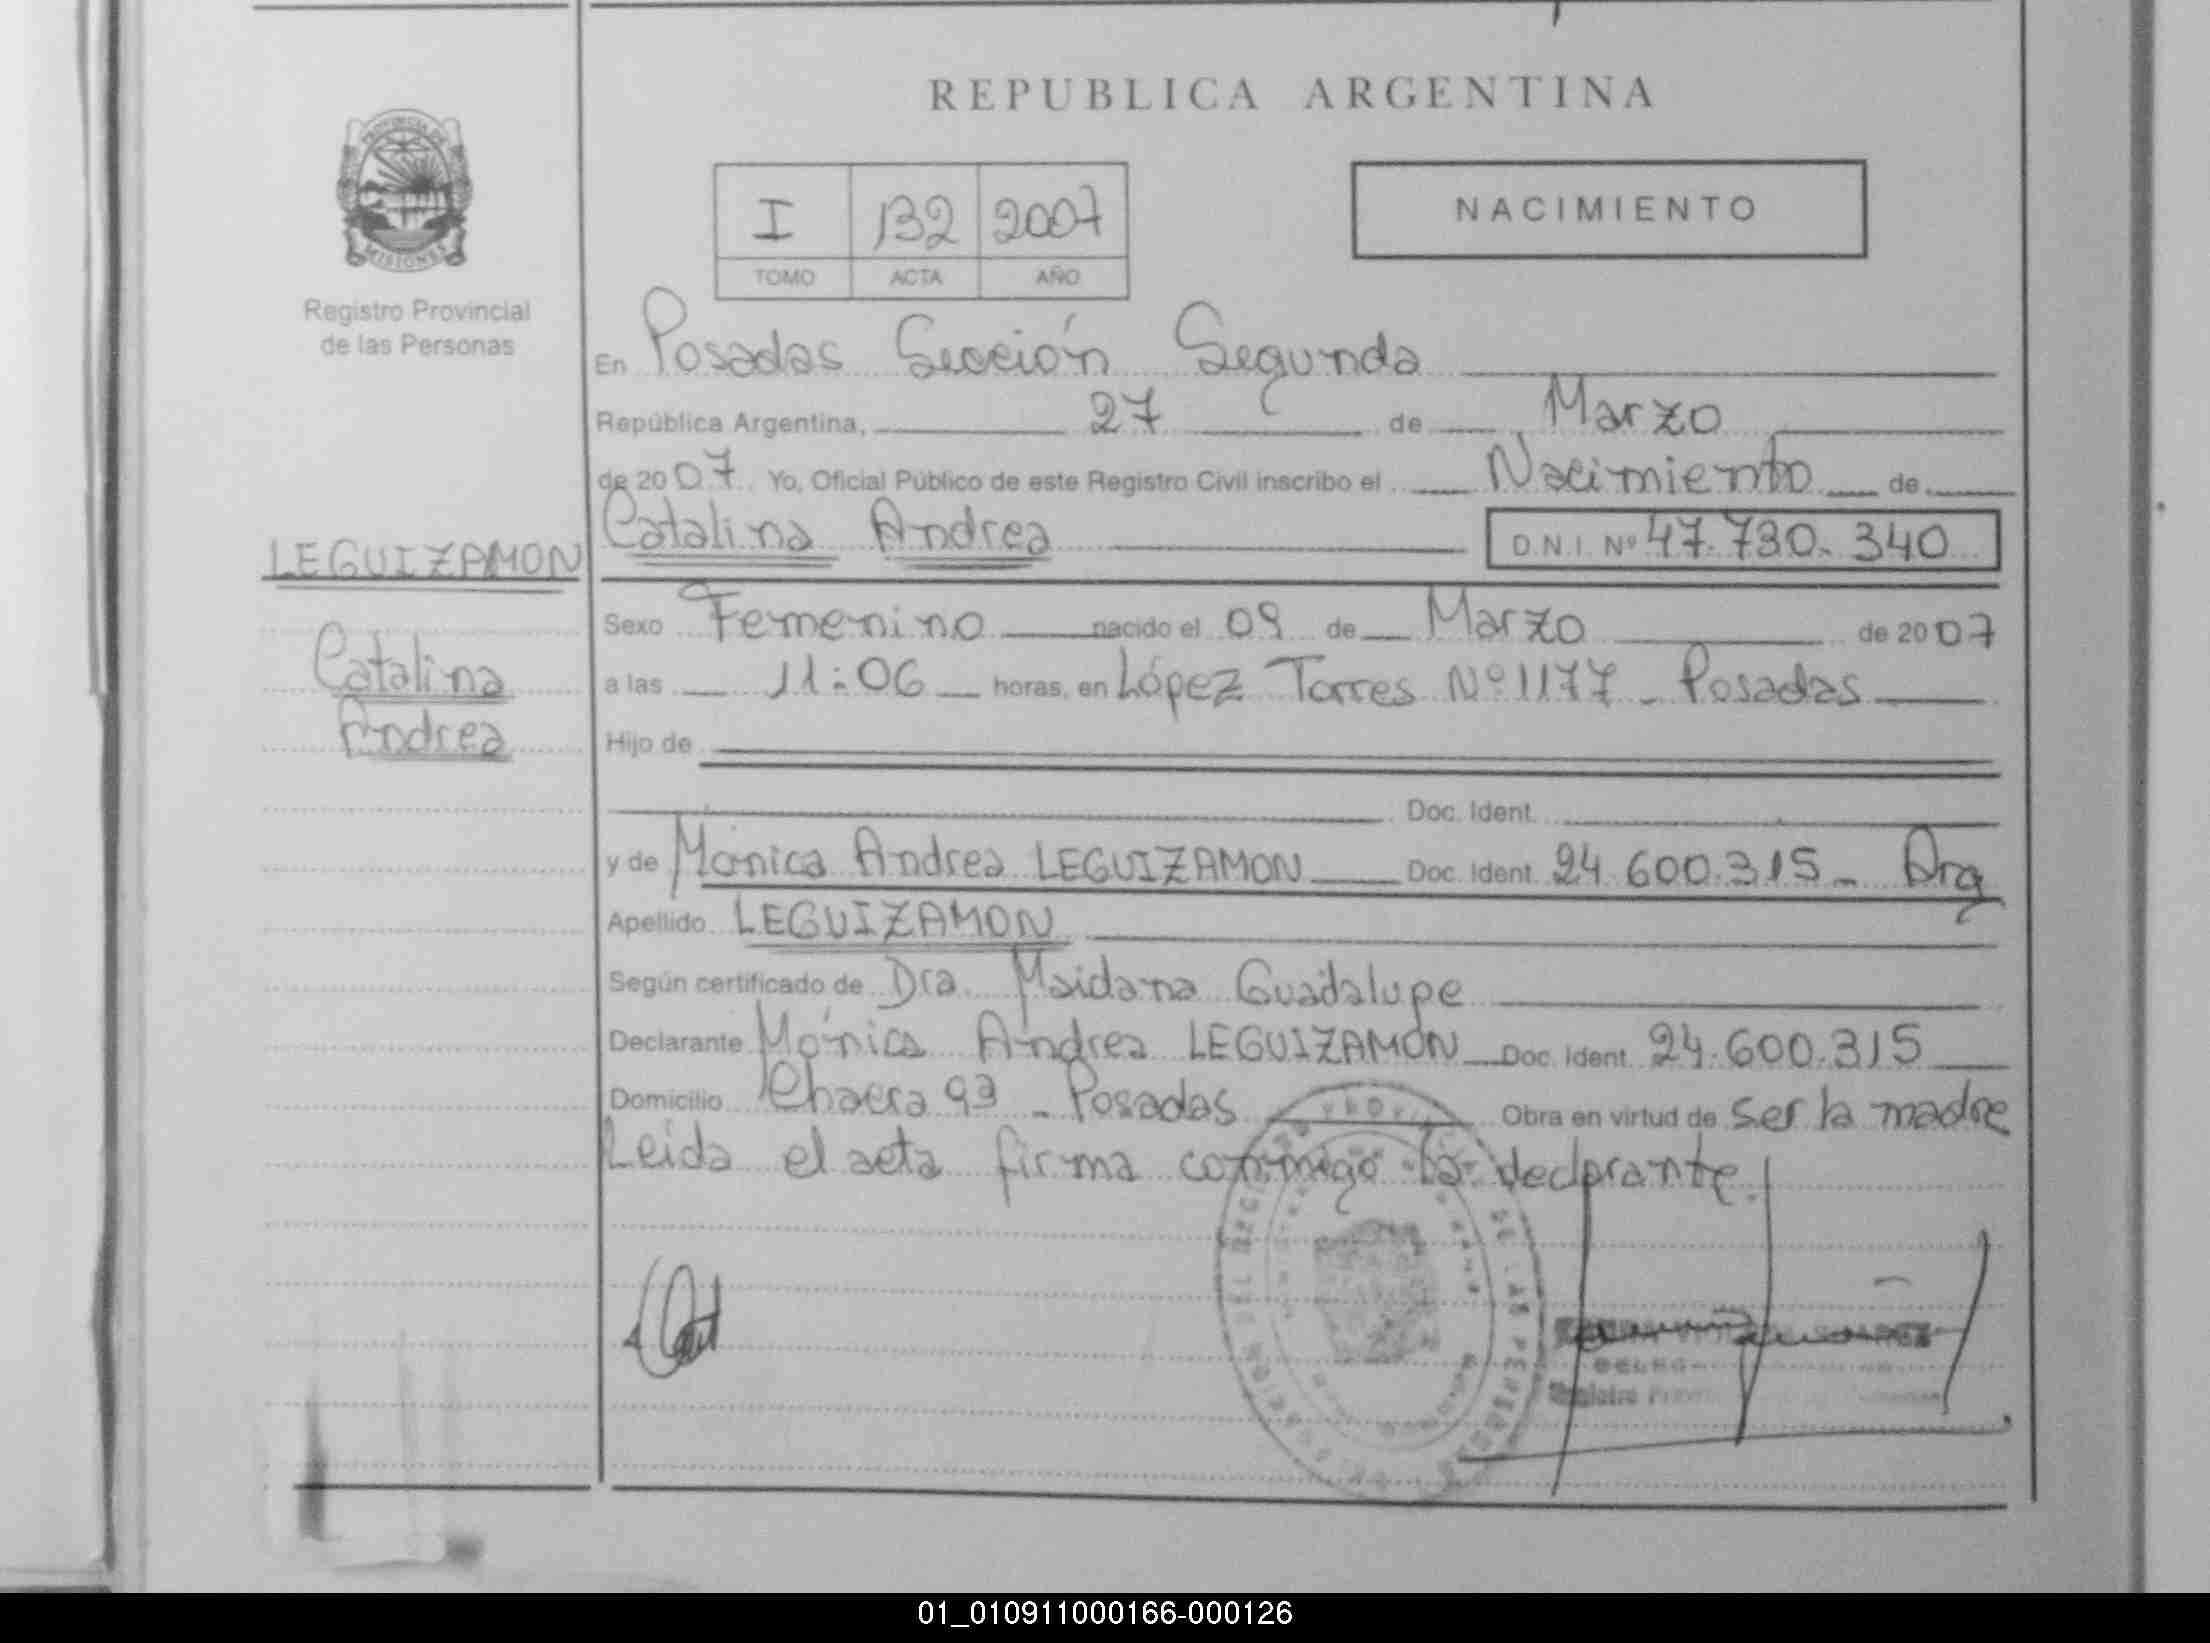 REPUBLICA ARGENTINA
PROVINCIA DE
MISIONES
Registro Provincial
de las Personas
I 132 2007
TOMO ACTA AÑO
NACIMIENTO
En Posadas Sección Segunda
República Argentina, 27 de Marzo
de 2007 Yo, Oficial Público de este Registro Civil inscribo el Nacimiento de
LEGUIZAMON
Catalina
Andrea
Catalina Andrea D.N.I. Nº 47.730.340
Sexo Femenino nacido el 09 de Marzo de 2007
a las 11:06 horas, en López Torres Nº 1177 - Posadas
Hijo de
Doc. Ident.
y de Mónica Andrea LEGUIZAMON Doc. Ident. 24.600.315 - Arg
Apellido LEGUIZAMON
Según certificado de Dra. Maidana Guadalupe
Declarante Mónica Andrea LEGUIZAMON Doc. Ident. 24.600.315
Domicilio Chacra 93 - Posadas Obra en virtud de ser la madre
Leida el acta firma conmigo la declarante.
01_010911000166-000126